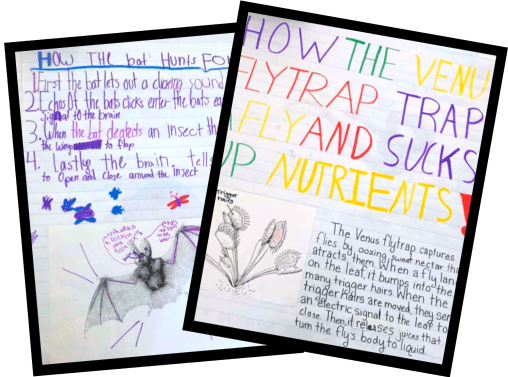 HOW THE bat HUNTS FO
1. First the bat lets out a clicking sound
2. Echos Of the bats clicks enter the bats ea
signal to the brain
3. When the bat deatects an insect th
the wings to flap
4. Lastly the brain. tells
to Open and Close around the Insect
HOW THE VENU
FLYTRAP TRAP
A FLY AND SUCKS
UP NUTRIENTS!
Trigger
hairs
The Venus flytrap captures
flies by oozing sweet nectar tha
atracts them. When a fly lan
on the leaf, it bumps into the
many trigger hairs. When the
trigger hairs are moved, they sen
an electric signal to the leaf to
close. Then, it releases juices that
turn the fly's body to liquid.